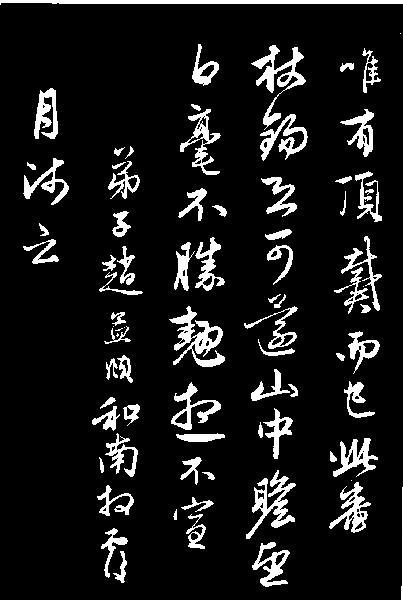 唯有頂戴而已此番
杖錫可還山中瞻望
白毫不勝翹想不宣
弟子趙孟頫和南拜覆
月師